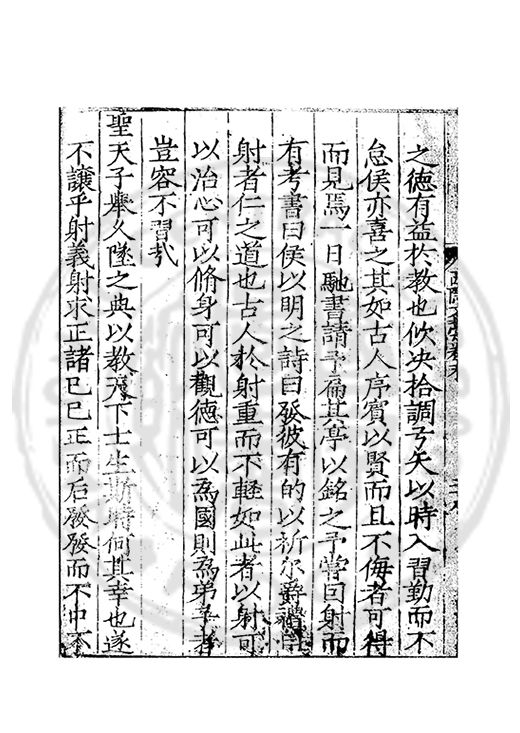 之德有益於教也佽决拾調弓矢以時入習勤而不
怠侯亦喜之其如古人序賓以賢而且不侮者可得
而見焉一日馳書請予扁其亭以銘之予嘗曰射而
有考書曰侯以明之詩曰發彼有的以祈尔爵禮曰
射者仁之道也古人於射重而不輕如此者以射可
以治心可以脩身可以觀德可以爲國則爲弟子者
豈容不習哉
聖天子舉久墜之典以教天下士生斯時何其幸也遂
不讓乎射義射求正諸已已正而后發發而不中不